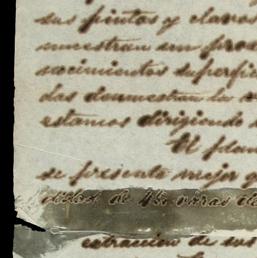 sus puntos y claros
muestran un pro
nacimientos superfic
das demuestran la
estamos dirigiendo
El plan
se presenta mejor q
dides de 460 varas de
extraccion de sus